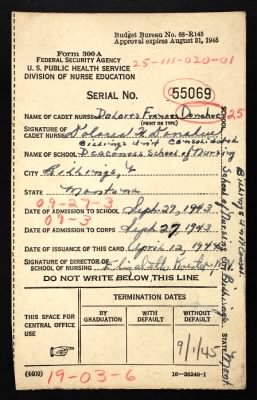 Budget Bureau No. 68-R145
Approval expires August 31, 1945
Form 300A
FEDERAL SECURITY AGENCY
U. S. PUBLIC HEALTH SERVICE
DIVISION OF NURSE EDUCATION
25-111-020-01
SERIAL NO. 55069
25
NAME OF CADET NURSE Dolores Frances Donahue
(PRINT OR TYPE)
SIGNATURE OF
CADET NURSE Dolores F. Donahue
Billings Unit Consolidated
NAME OF SCHOOL Deaconess School of Nursing
CITY Billings,
STATE Montana
09-27-3
DATE OF ADMISSION TO SCHOOL Sept. 27, 1943
09-3
DATE OF ADMISSION TO CORPS Sept 27 1943
DATE OF ISSUANCE OF THIS CARD April 12, 1944
SIGNATURE OF DIRECTOR
OF SCHOOL OF NURSING Elizabeth
DO NOT WRITE BELOW THIS LINE
THIS SPACE FOR
CENTRAL OFFICE
USE
TERMINATION DATES
BY
GRADUATION
WITH
DEFAULT
WITHOUT
DEFAULT
9/1/45
(4409)
19-03-6
16-38249-1
Billings Unit Consol.
School of Nursing, Billings,
STATE